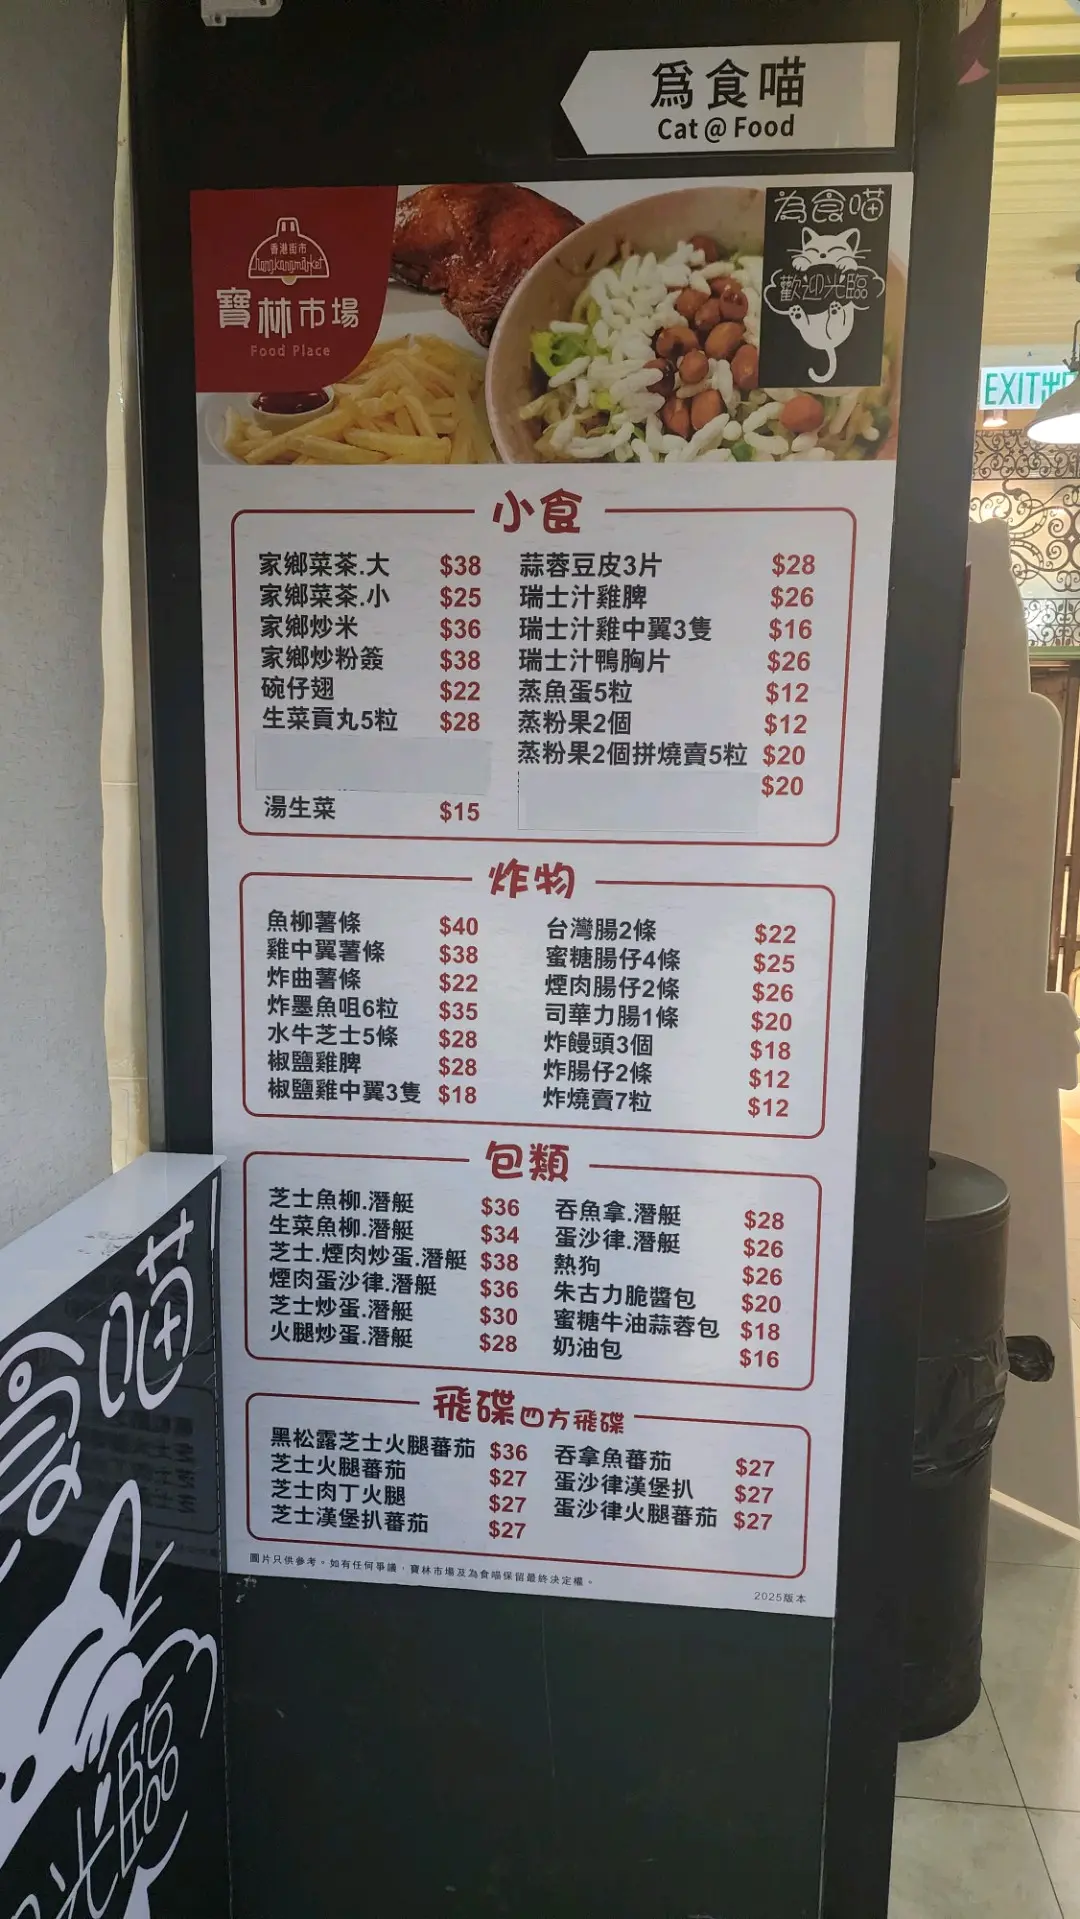 為食喵
Cat @ Food
香港街市
hongkongmarket
寶林市場
Food Place
為食喵
歡迎光臨
EXIT 出
小食
家鄉菜茶.大 $38
家鄉菜茶.小 $25
家鄉炒米 $36
家鄉炒粉簽 $38
碗仔翅 $22
生菜貢丸5粒 $28
湯生菜 $15
蒜蓉豆皮3片 $28
瑞士汁雞脾 $26
瑞士汁雞中翼3隻 $16
瑞士汁鴨胸片 $26
蒸魚蛋5粒 $12
蒸粉果2個 $12
蒸粉果2個拼燒賣5粒 $20
$20
炸物
魚柳薯條 $40
雞中翼薯條 $38
炸曲薯條 $22
炸墨魚咀6粒 $35
水牛芝士5條 $28
椒鹽雞脾 $28
椒鹽雞中翼3隻 $18
台灣腸2條 $22
蜜糖腸仔4條 $25
煙肉腸仔2條 $26
司華力腸1條 $20
炸饅頭3個 $18
炸腸仔2條 $12
炸燒賣7粒 $12
包類
芝士魚柳.潛艇 $36
生菜魚柳.潛艇 $34
芝士.煙肉炒蛋.潛艇 $38
煙肉蛋沙律.潛艇 $36
芝士炒蛋.潛艇 $30
火腿炒蛋.潛艇 $28
吞魚拿.潛艇 $28
蛋沙律.潛艇 $26
熱狗 $26
朱古力脆醬包 $20
蜜糖牛油蒜蓉包 $18
奶油包 $16
飛碟 四方飛碟
黑松露芝士火腿蕃茄 $36
芝士火腿蕃茄 $27
芝士肉丁火腿 $27
芝士漢堡扒蕃茄 $27
吞拿魚蕃茄 $27
蛋沙律漢堡扒 $27
蛋沙律火腿蕃茄 $27
圖片只供參考。如有任何爭議，寶林市場及為食喵保留最終決定權。
2025版本
食喵
光臨